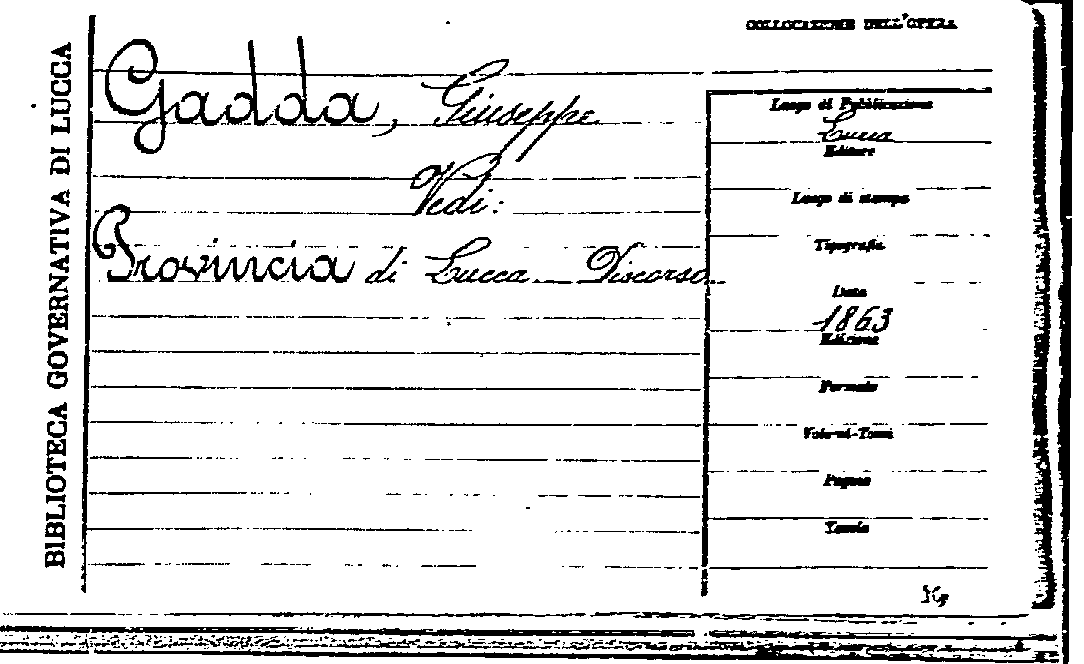 BIBLIOTECA GOVERNATIVA DI LUCCA
COLLOCAZIONE DELL'OPERA
Gadda, Giuseppe
Vedi:
Provincia di Lucca. Discorso.
Luogo di Pubblicazione
Lucca
Editore
Luogo di stampa
Tipografia
Data
1863
Edizione
Formato
Volumi-Tomi
Pagine
Tavole